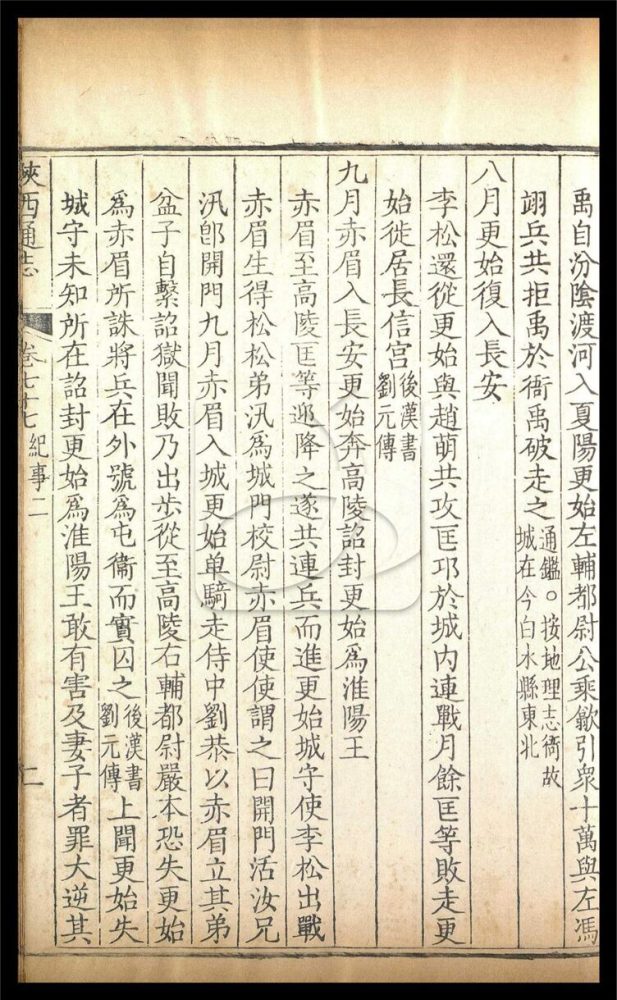 禹自汾陰渡河入夏陽更始左輔都尉公乘歙引衆十萬與左馮
翊兵共拒禹於衙禹破走之通鑑○按地理志衙故城在今白水縣東北
八月更始復入長安
李松還從更始與趙萌共攻匡卭於城内連戰月餘匡等敗走更
始徙居長信宫後漢書劉元傳
九月赤眉入長安更始奔高陵詔封更始爲淮陽王
赤眉至高陵匡等迎降之遂共連兵而進更始城守使李松出戰
赤眉生得松松弟汎爲城門校尉赤眉使使謂之曰開門活汝兄
汎卽開門九月赤眉入城更始单騎走侍中劉恭以赤眉立其弟
盆子自繫詔獄聞敗乃出步從至高陵右輔都尉嚴本恐失更始
爲赤眉所誅將兵在外號爲屯衛而實囚之後漢書劉元傳上聞更始失
城守未知所在詔封更始爲淮陽王敢有害及妻子者罪大逆其
陜西通志
卷七十七 紀事二
二